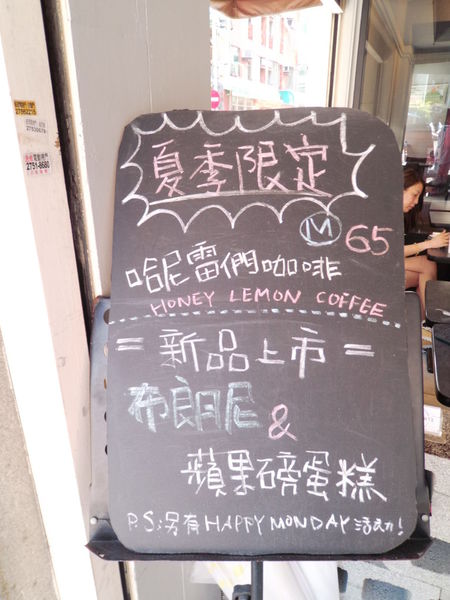 夏季限定
M 65
哈尼雷們咖啡
HONEY LEMON COFFEE
= 新品上市 =
布朗尼
&
蘋果磅蛋糕
P.S:另有HAPPY MONDAY 活動!
2751-8680